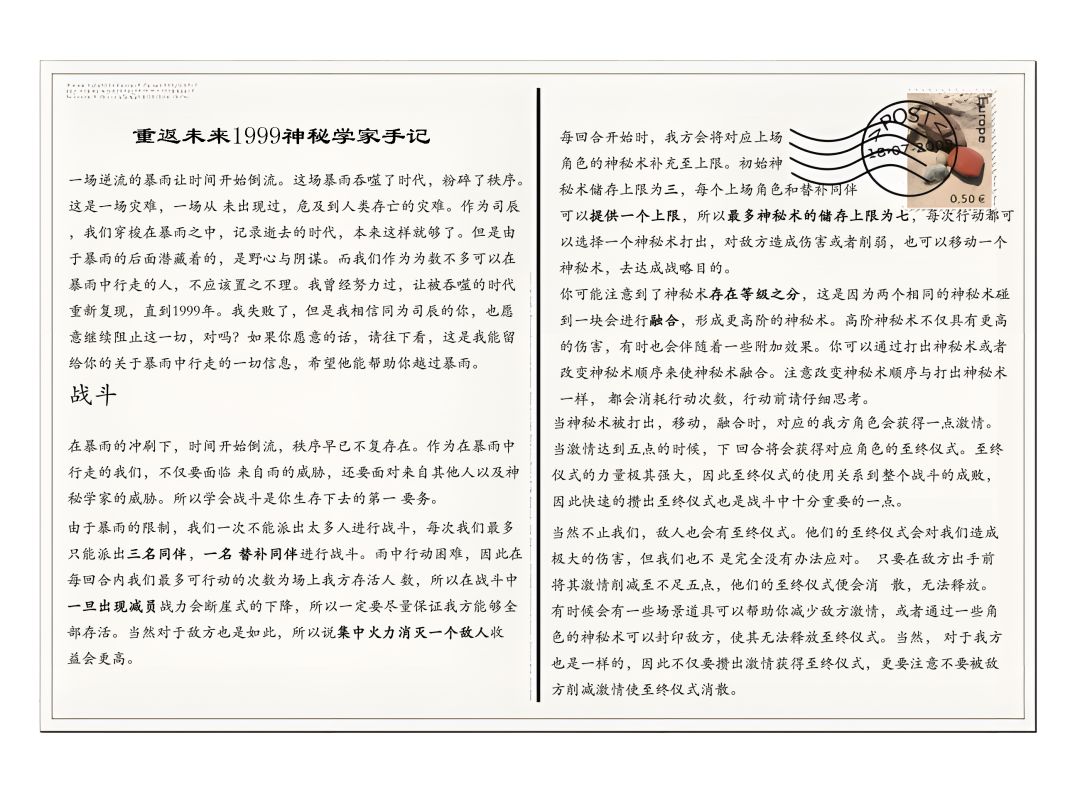 重返未来1999神秘学家手记
一场逆流的暴雨让时间开始倒流。这场暴雨吞噬了时代，粉碎了秩序。
这是一场灾难，一场从 未出现过，危及到人类存亡的灾难。作为司辰
，我们穿梭在暴雨之中，记录逝去的时代，本来这样就够了。但是由
于暴雨的后面潜藏着的，是野心与阴谋。而我们作为为数不多可以在
暴雨中行走的人，不应该置之不理。我曾经努力过，让被吞噬的时代
重新复现，直到1999年。我失败了，但是我相信同为司辰的你，也愿
意继续阻止这一切，对吗？如果你愿意的话，请往下看，这是我能留
给你的关于暴雨中行走的一切信息，希望他能帮助你越过暴雨。
战斗
在暴雨的冲刷下，时间开始倒流，秩序早已不复存在。作为在暴雨中
行走的我们，不仅要面临 来自雨的威胁，还要面对来自其他人以及神
秘学家的威胁。所以学会战斗是你生存下去的第一 要务。
由于暴雨的限制，我们一次不能派出太多人进行战斗，每次我们最多
只能派出三名同伴，一名 替补同伴进行战斗。雨中行动困难，因此在
每回合内我们最多可行动的次数为场上我方存活人 数，所以在战斗中
一旦出现减员战力会断崖式的下降，所以一定要尽量保证我方能够全
部存活。当然对于敌方也是如此，所以说集中火力消灭一个敌人收
益会更高。
每回合开始时，我方会将对应上场
角色的神秘术补充至上限。初始神
秘术储存上限为三，每个上场角色和替补同伴
可以提供一个上限，所以最多神秘术的储存上限为七，每次行动都可
以选择一个神秘术打出，对敌方造成伤害或者削弱，也可以移动一个
神秘术，去达成战略目的。
你可能注意到了神秘术存在等级之分，这是因为两个相同的神秘术碰
到一块会进行融合，形成更高阶的神秘术。高阶神秘术不仅具有更高
的伤害，有时也会伴随着一些附加效果。你可以通过打出神秘术或者
改变神秘术顺序来使神秘术融合。注意改变神秘术顺序与打出神秘术
一样， 都会消耗行动次数，行动前请仔细思考。
当神秘术被打出，移动，融合时，对应的我方角色会获得一点激情。
当激情达到五点的时候，下 回合将会获得对应角色的至终仪式。至终
仪式的力量极其强大，因此至终仪式的使用关系到整个战斗的成败，
因此快速的攒出至终仪式也是战斗中十分重要的一点。
当然不止我们，敌人也会有至终仪式。他们的至终仪式会对我们造成
极大的伤害，但我们也不 是完全没有办法应对。 只要在敌方出手前
将其激情削减至不足五点，他们的至终仪式便会消 散，无法释放。
有时候会有一些场景道具可以帮助你减少敌方激情，或者通过一些角
色的神秘术可以封印敌方，使其无法释放至终仪式。当然， 对于我方
也是一样的，因此不仅要攒出激情获得至终仪式，更要注意不要被敌
方削减激情使至终仪式消散。
POST
Europe
0,50 €